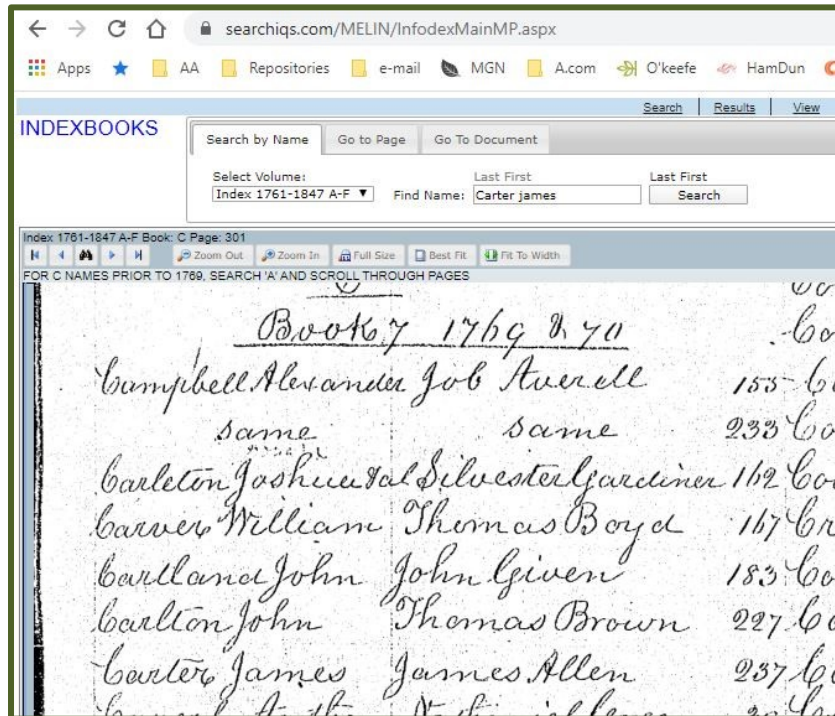 searchiqs.com/MELIN/InfodexMainMP.aspx
Apps AA Repositories e-mail MGN A.com O'keefe HamDun
Search Results View
INDEXBOOKS
Search by Name Go to Page Go To Document
Select Volume: Last First Last First
Index 1761-1847 A-F Find Name: Carter james Search
Index 1761-1847 A-F Book: C Page: 301
Zoom Out Zoom In Full Size Best Fit Fit To Width
FOR C NAMES PRIOR TO 1769, SEARCH 'A' AND SCROLL THROUGH PAGES
Book 7 1769 & 70
Campbell Alexander Job Averell 155
same same 233
Carleton Joshua et al Silvester Gardiner 162
Carver William Thomas Boyd 167
Cartland John John Given 183
Carlton John Thomas Brown 227
Carter James James Allen 237